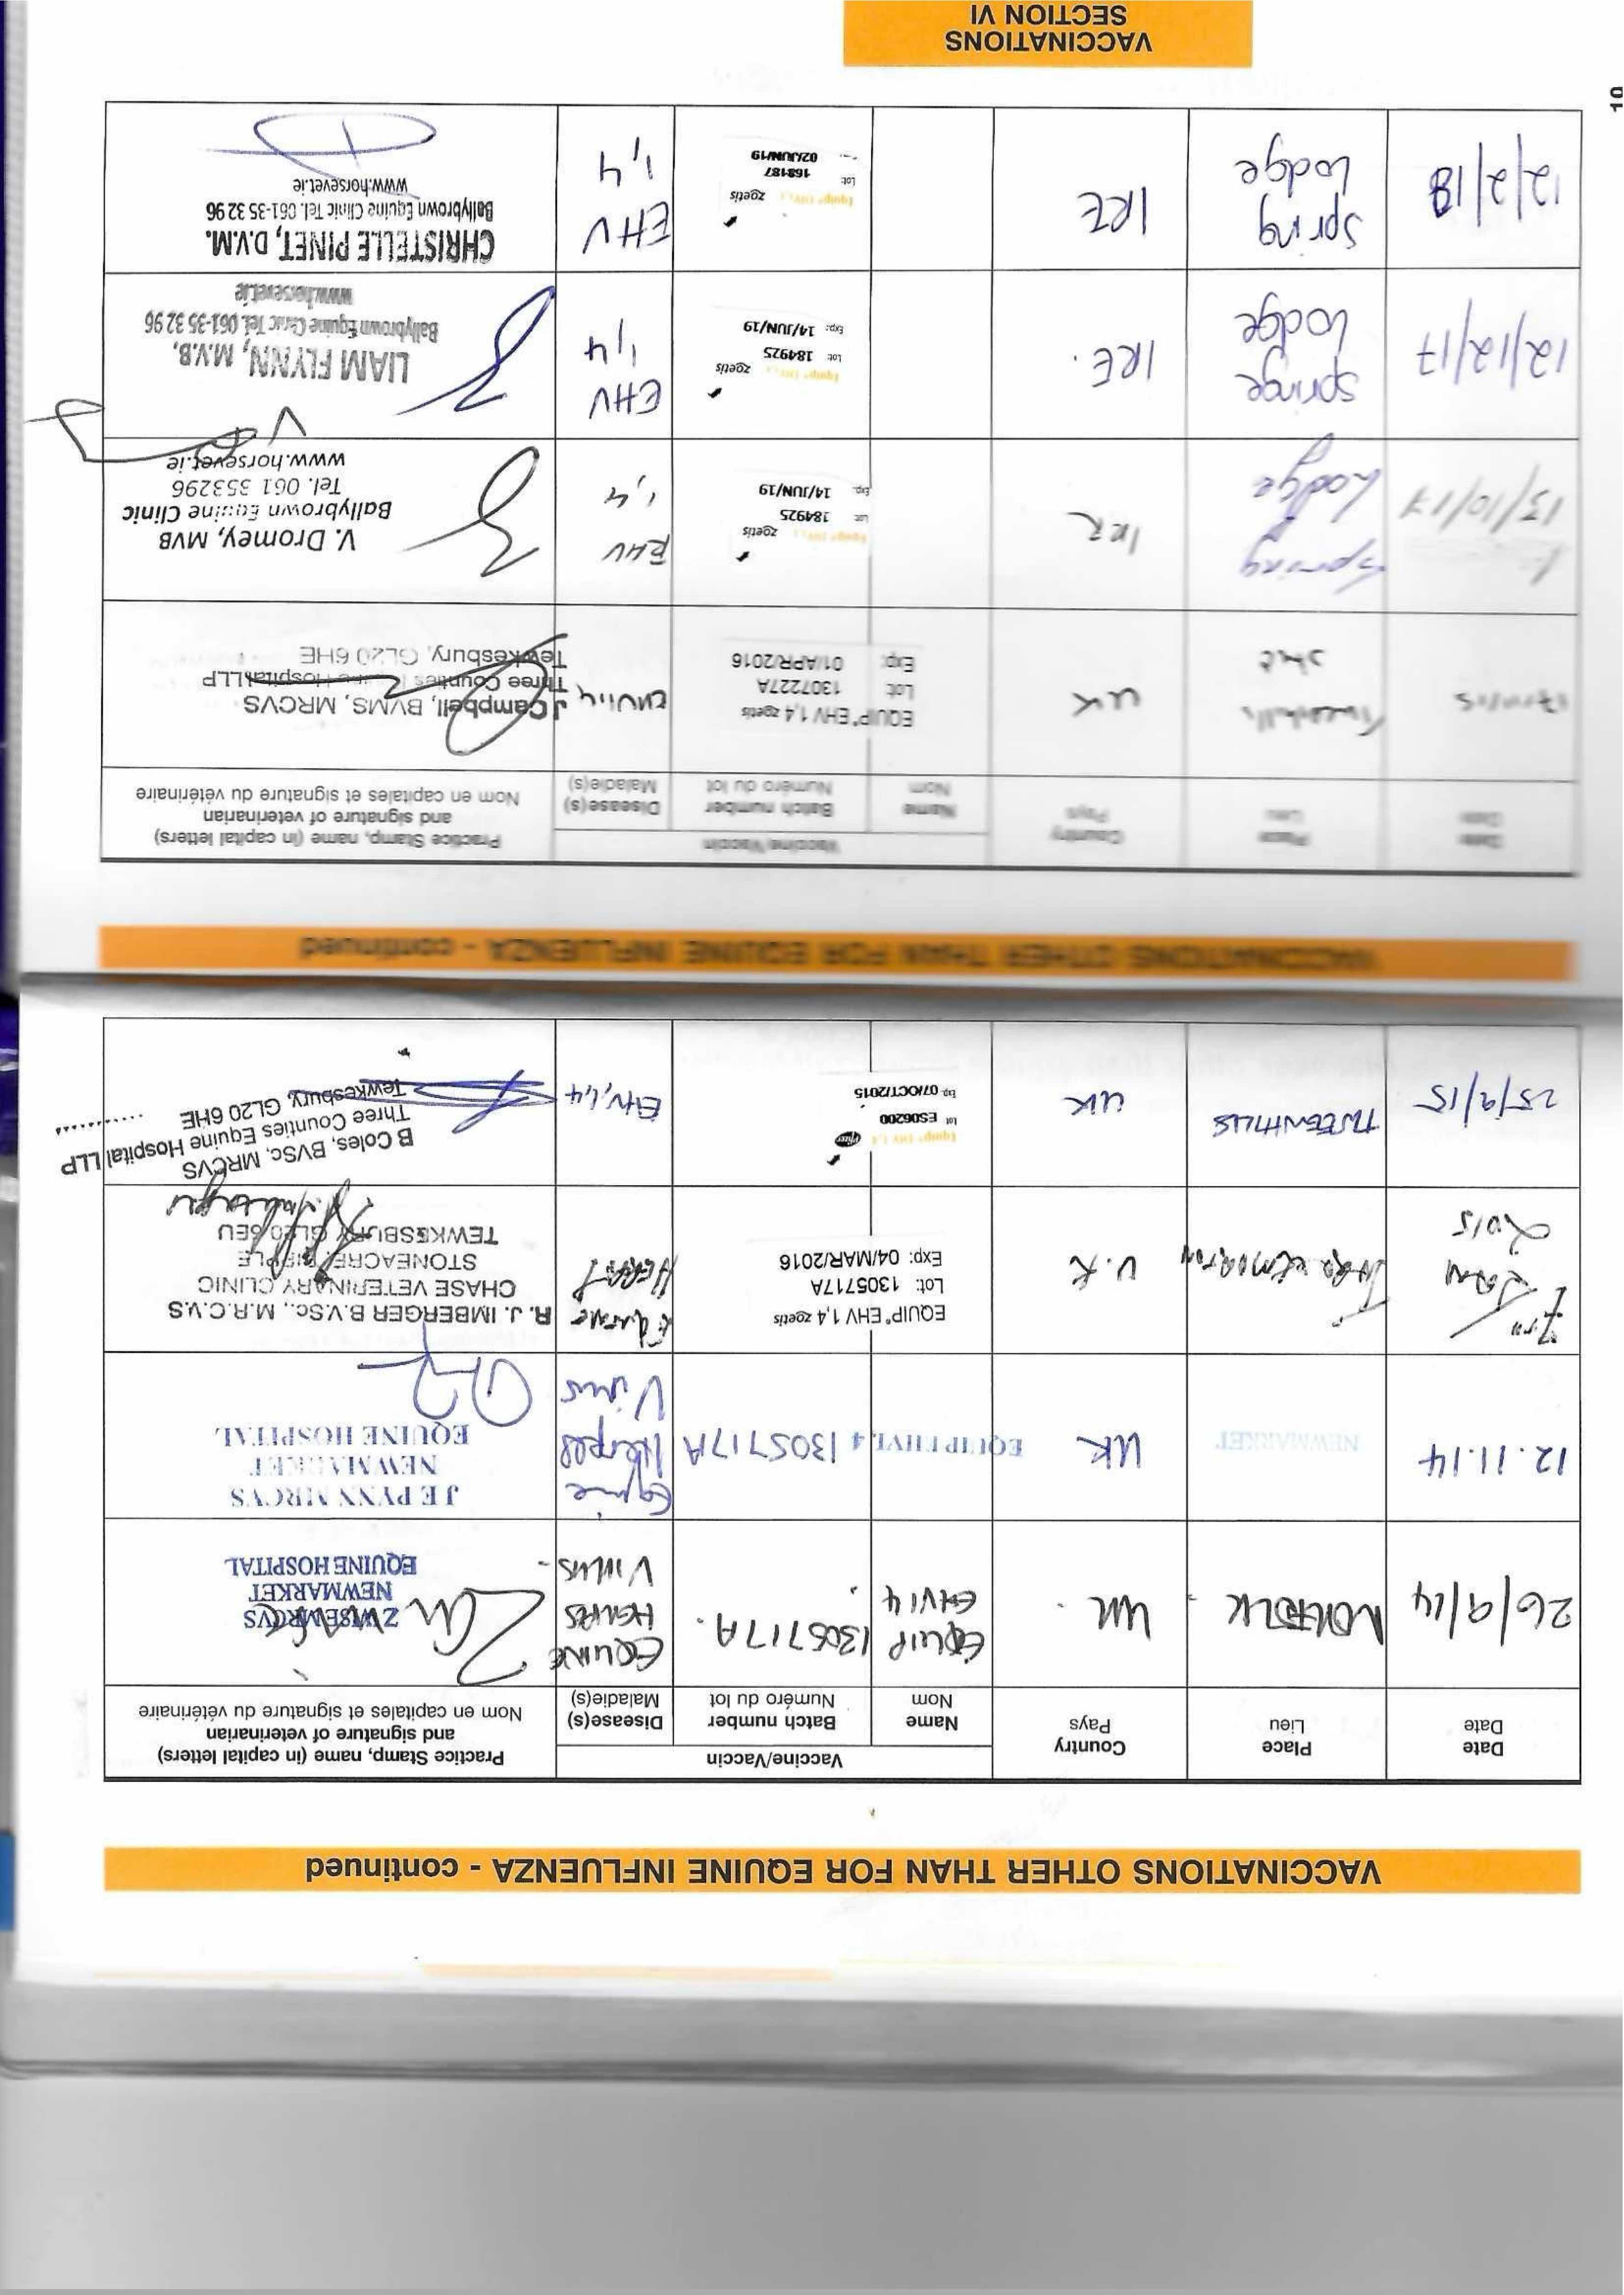 VACCINATIONS OTHER THAN FOR EQUINE INFLUENZA - continued
Date
Date
Place
Lieu
Country
Pays
Vaccine/Vaccin
Name
Nom
Batch number
Numéro du lot
Disease(s)
Maladie(s)
Practice Stamp, name (in capital letters)
and signature of veterinarian
Nom en capitales et signature du vétérinaire
26/9/14
NORFOLK
UK
EQUIP
EHV14
1305717A.
EQUINE
HERPES
VIRUS
Z WISE MRCVS
NEWMARKET
EQUINE HOSPITAL
12.11.14
NEWMARKET
UK
EQUIP EHV1,4
1305717A
Equine
Herpes
Virus
J E PYNN MRCVS
NEWMARKET
EQUINE HOSPITAL
JAN
2015
U.K
EQUIP® EHV 1,4 zoetis
Lot: 1305717A
Exp: 04/MAR/2016
Equine
R. J. IMBERGER B.V.Sc., M.R.C.V.S
CHASE VETERINARY CLINIC
STONEACRE, RIPPLE
TEWKESBURY GL20 6EU
25/9/15
TWEENHILLS
UK
Equip® EHV 1,4 Pfizer
Lot ES06200
Exp 07/OCT/2015
EHV1,4
B Coles, BVSc, MRCVS
Three Counties Equine Hospital LLP
Tewkesbury, GL20 6HE
VACCINATIONS OTHER THAN FOR EQUINE INFLUENZA - continued
Date
Date
Place
Lieu
Country
Pays
Vaccine/Vaccin
Name
Nom
Batch number
Numéro du lot
Disease(s)
Maladie(s)
Practice Stamp, name (in capital letters)
and signature of veterinarian
Nom en capitales et signature du vétérinaire
Tweenhills
UK
EQUIP® EHV 1,4 zoetis
Lot: 1307227A
Exp: 01/APR/2016
EHV1,4
J Campbell, BVMS, MRCVS
Three Counties Equine Hospital LLP
Tewkesbury, GL20 6HE
13/10/17
Spring
Lodge
IRE
Equip® EHV 1,4 zoetis
Lot: 184925
Exp: 14/JUN/19
EHV
1,4
V. Dromey, MVB
Ballybrown Equine Clinic
Tel. 061 353296
www.horsevet.ie
12/12/17
Springe
Lodge
IRE.
Equip® EHV 1,4 zoetis
Lot: 184925
Exp: 14/JUN/19
EHV
1,4
LIAM FLYNN, M.V.B.
Ballybrown Equine Clinic Tel. 061-35 32 96
www.horsevet.ie
12/2/18
Spring
Lodge
IRE
Equip® EHV 1,4 zoetis
Lot: 168187
02/JUN/19
EHV
1,4
CHRISTELLE PINET, D.V.M.
Ballybrown Equine Clinic Tel. 061-35 32 96
www.horsevet.ie
VACCINATIONS
SECTION VI
10